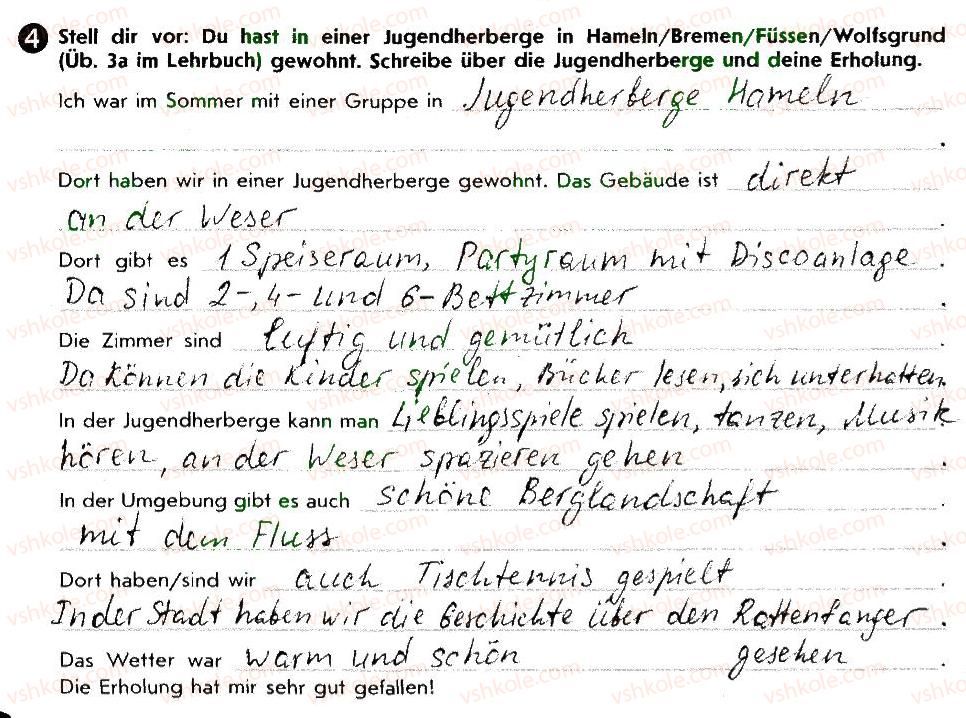 4 Stell dir vor: Du hast in einer Jugendherberge in Hameln/Bremen/Füssen/Wolfsgrund
(Üb. 3a im Lehrbuch) gewohnt. Schreibe über die Jugendherberge und deine Erholung.
Ich war im Sommer mit einer Gruppe in Jugendherberge Hameln
.
Dort haben wir in einer Jugendherberge gewohnt. Das Gebäude ist direkt
an der Weser .
Dort gibt es 1 Speiseraum, Partyraum mit Discoanlage .
Da sind 2-, 4- und 6-Bettzimmer .
Die Zimmer sind luftig und gemütlich .
Da können die Kinder spielen, Bücher lesen, sich unterhalten.
In der Jugendherberge kann man Lieblingsspiele spielen, tanzen, Musik
hören, an der Weser spazieren gehen .
In der Umgebung gibt es auch schöne Berglandschaft .
mit dem Fluss .
Dort haben/sind wir auch Tischtennis gespielt .
In der Stadt haben wir die Geschichte über den Rattenfänger .
Das Wetter war warm und schön gesehen .
Die Erholung hat mir sehr gut gefallen!